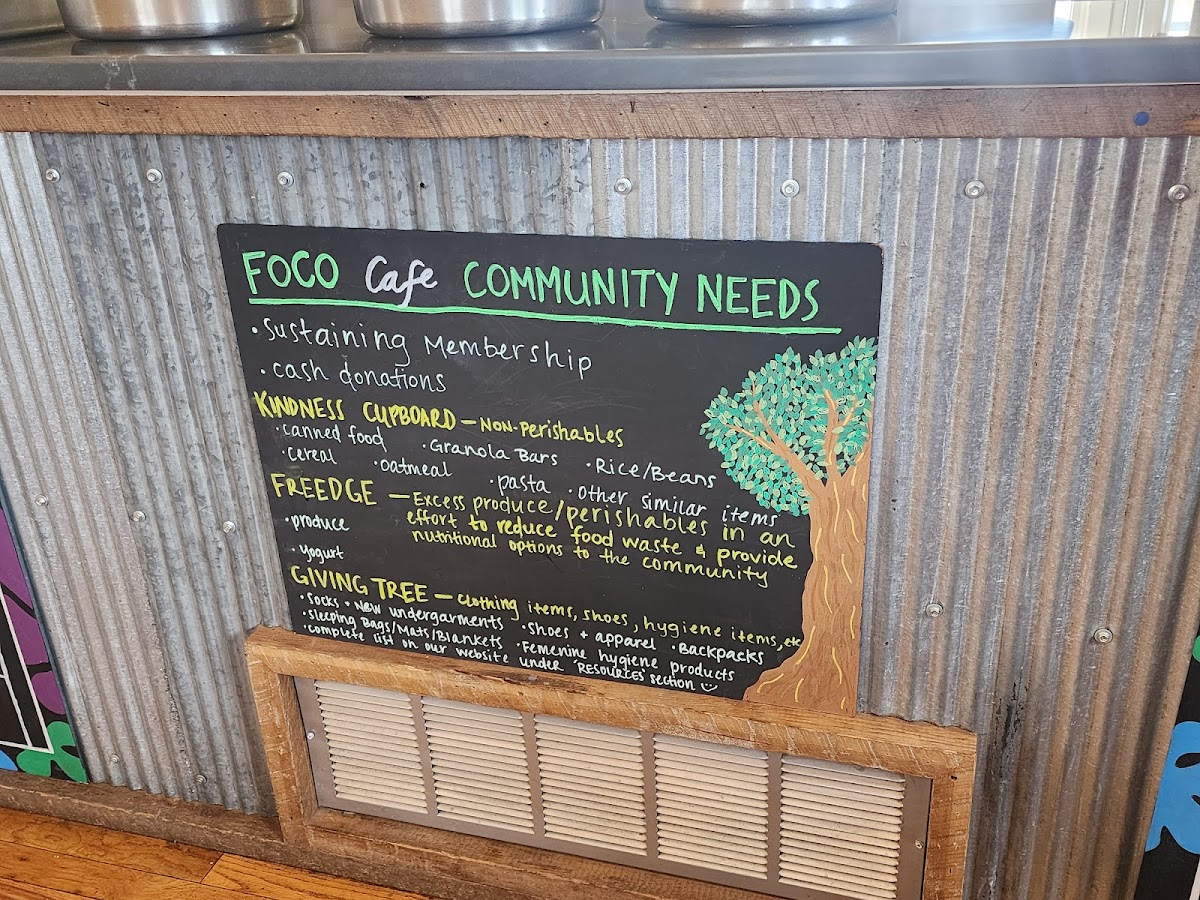 FOCO Cafe COMMUNITY NEEDS
• Sustaining Membership
• cash donations
KINDNESS CUPBOARD — NON-Perishables
• canned food • Granola Bars • Rice/Beans
• cereal • oatmeal • pasta • other similar items
FREEDGE — Excess produce/perishables in an
effort to reduce food waste & provide
nutritional options to the community
• produce
• yogurt
GIVING TREE — clothing items, shoes, hygiene items, etc
• Socks • New undergarments • Shoes + apparel • Backpacks
• Sleeping Bags/Mats/Blankets • Femenine hygiene products
• complete list on our website under "RESOURCES" section